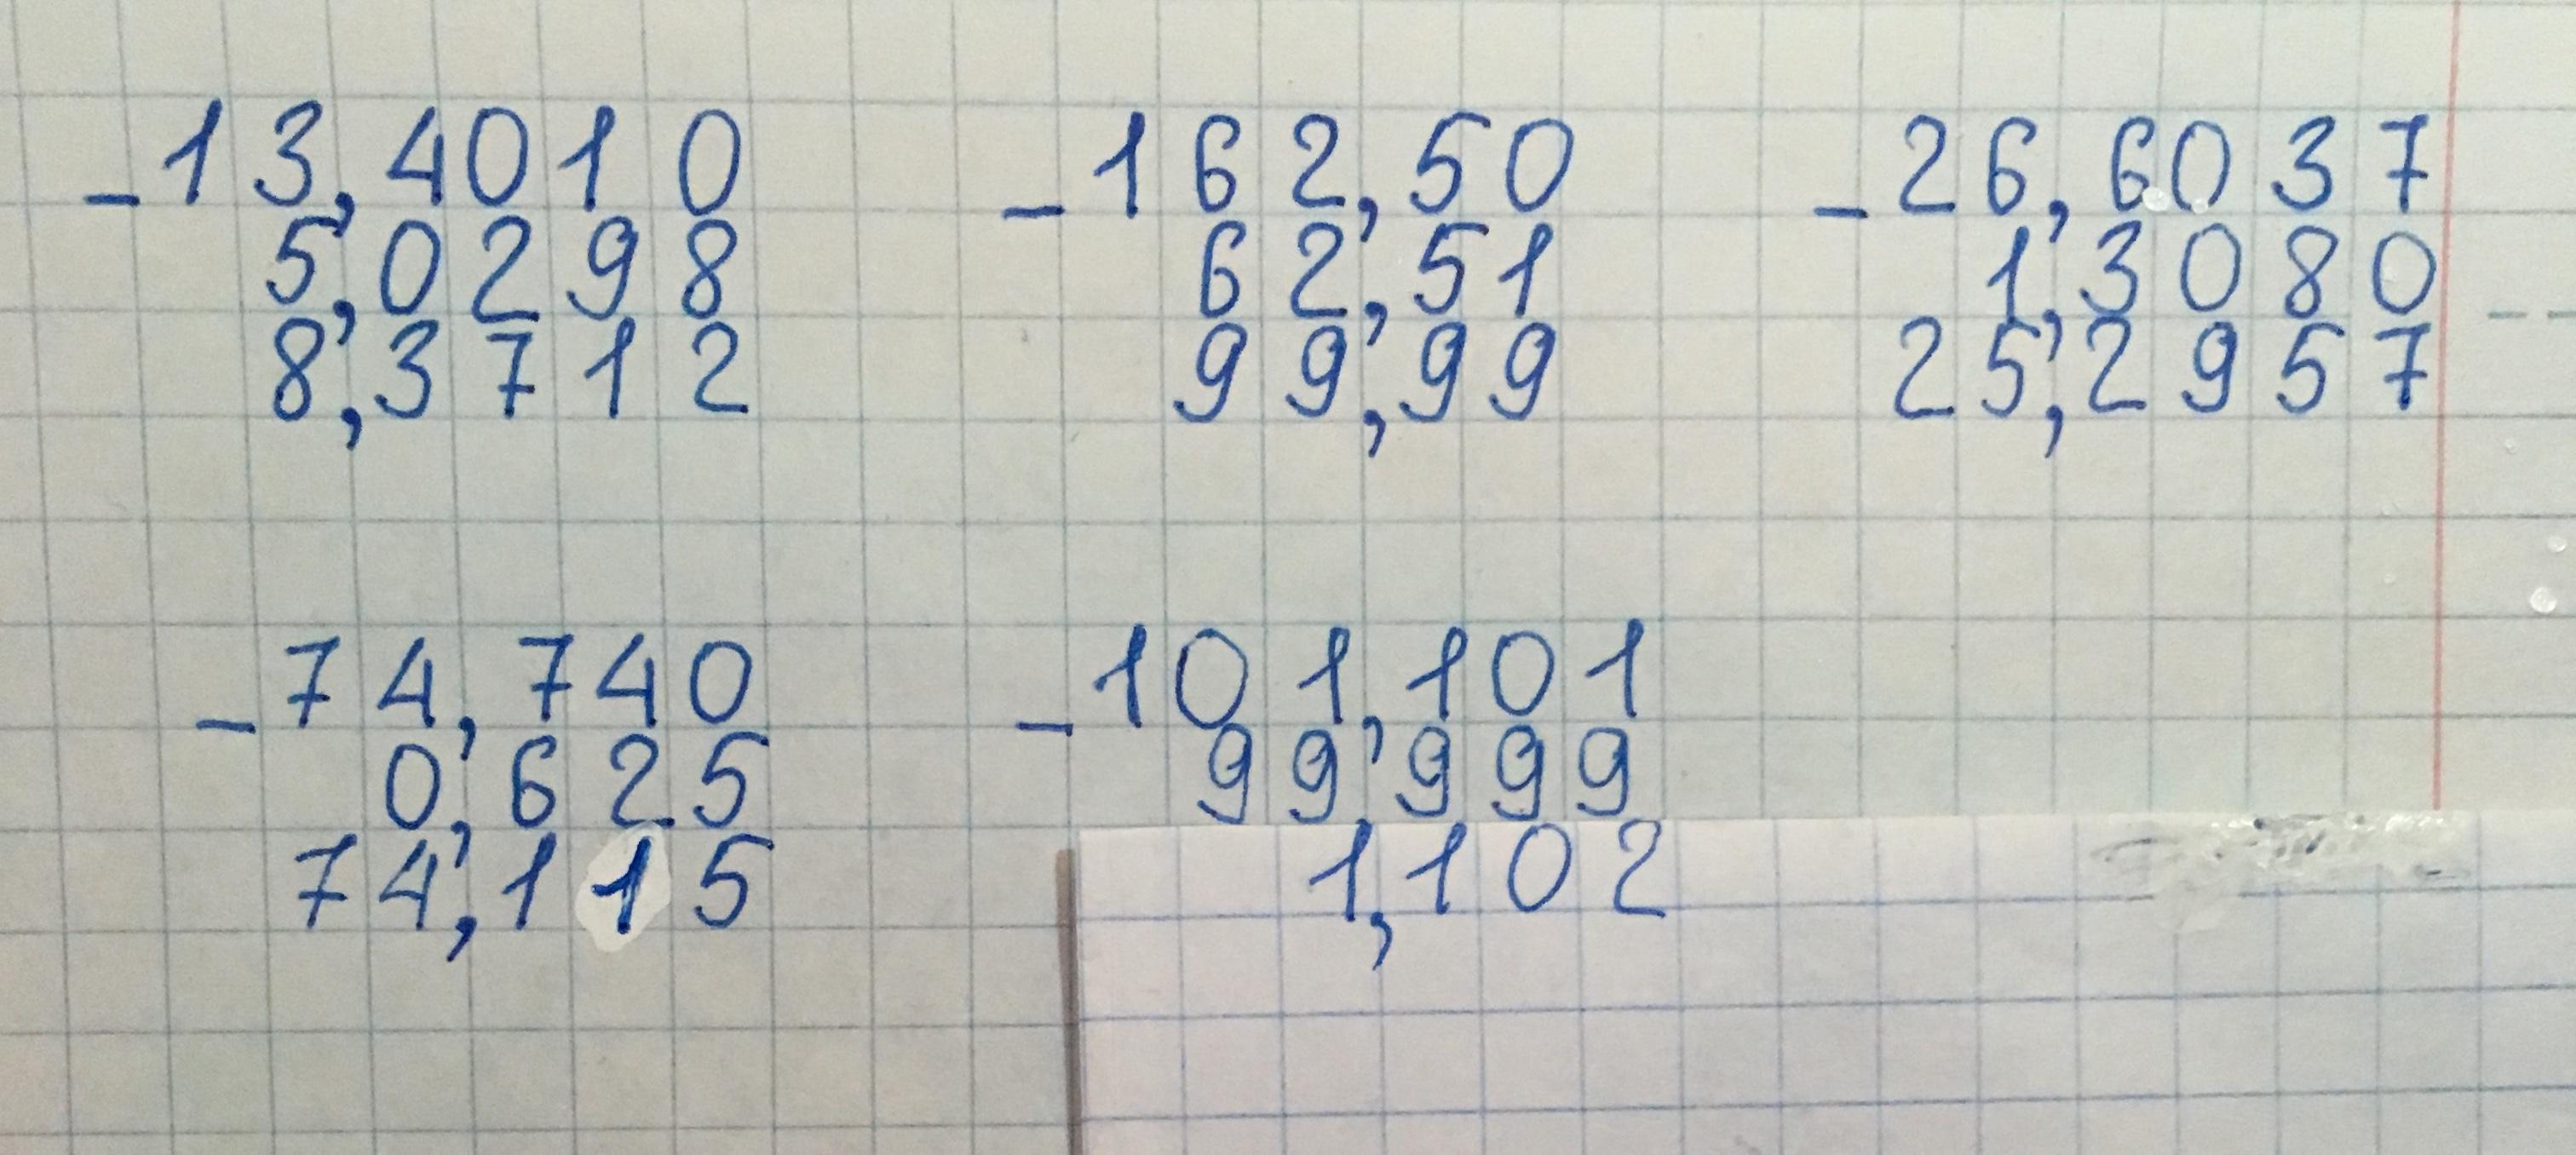 -13,4010
5,0298
8,3712
-162,50
62,51
99,99
-26,6037
1,3080
25,2957
-74,740
0,625
74,115
-101,101
99,999
1,102